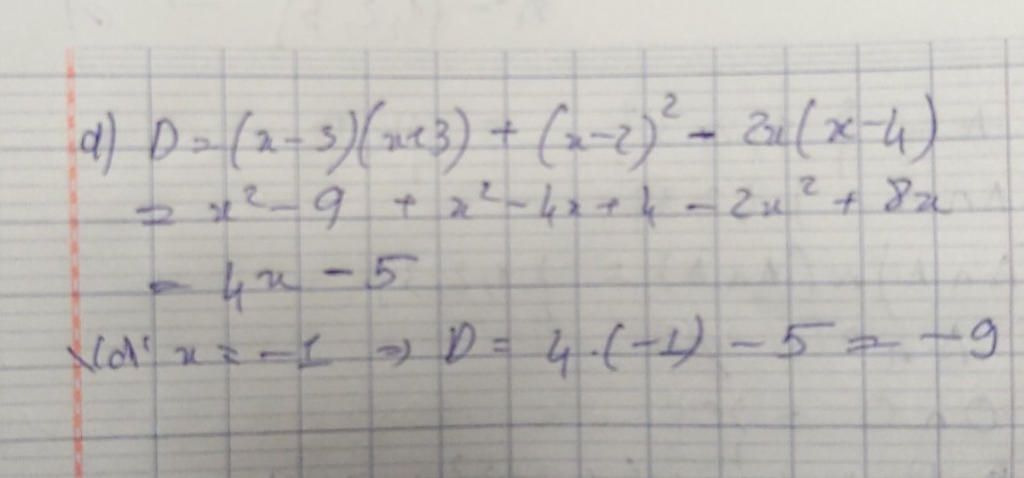 d) D = (x-3)(x+3) + (x-2)² - 2x(x-4)
= x² - 9 + x² - 4x + 4 - 2x² + 8x
= 4x - 5
x = -1 ⇒ D = 4.(-1) - 5 = -9